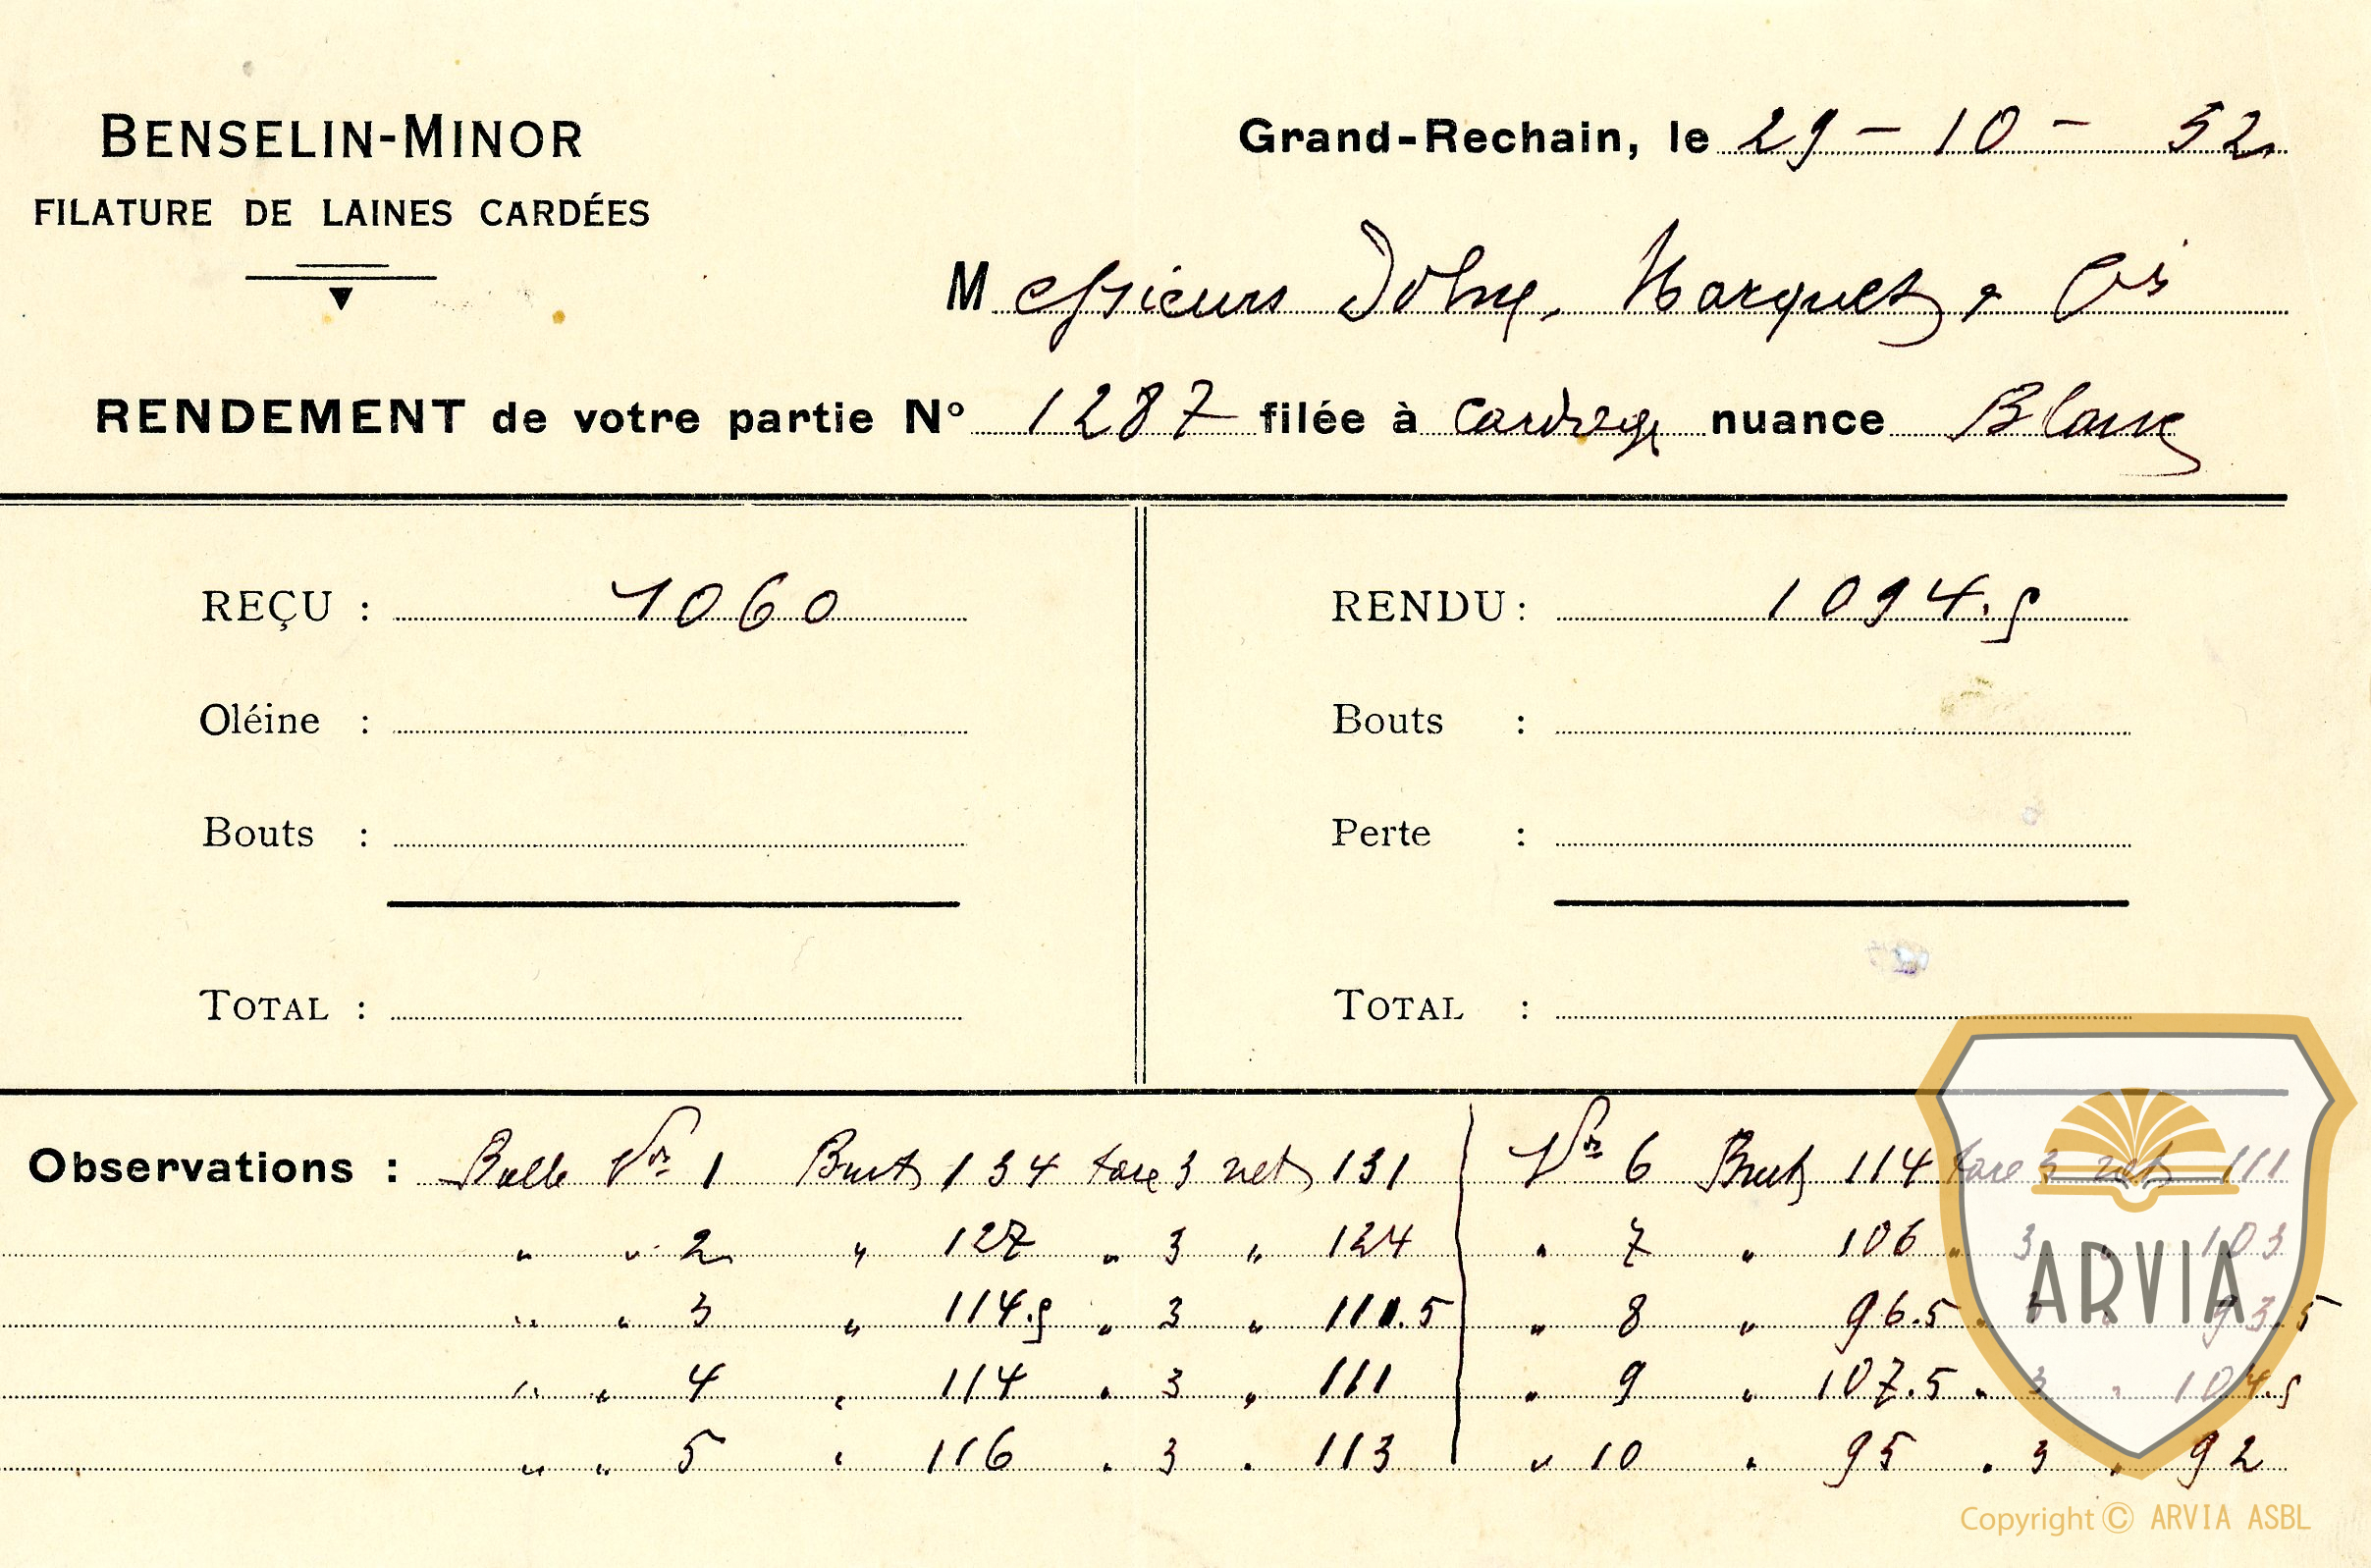 BENSELIN-MINOR
FILATURE DE LAINES CARDÉES
Grand-Rechain, le 29 - 10 - 52
Messieurs Marquet & Cie
RENDEMENT de votre partie N° 1287 filée à cardage nuance Blanc
REÇU : 1060
Oléine :
Bouts :
TOTAL :
RENDU : 1094.5
Bouts :
Perte :
TOTAL :
Observations : Balle No 1 Brut 134 tare 3 net 131 No 6 Brut 114 tare 3 net 111
" " 2 " 127 " 3 " 124 " 7 " 106 " 3 " 103
" " 3 " 114.5 " 3 " 111.5 " 8 " 96.5 " 3 " 93.5
" " 4 " 114 " 3 " 111 " 9 " 107.5 " 3 " 104.5
" " 5 " 116 " 3 " 113 " 10 " 95 " 3 " 92
ARVIA
Copyright © ARVIA ASBL